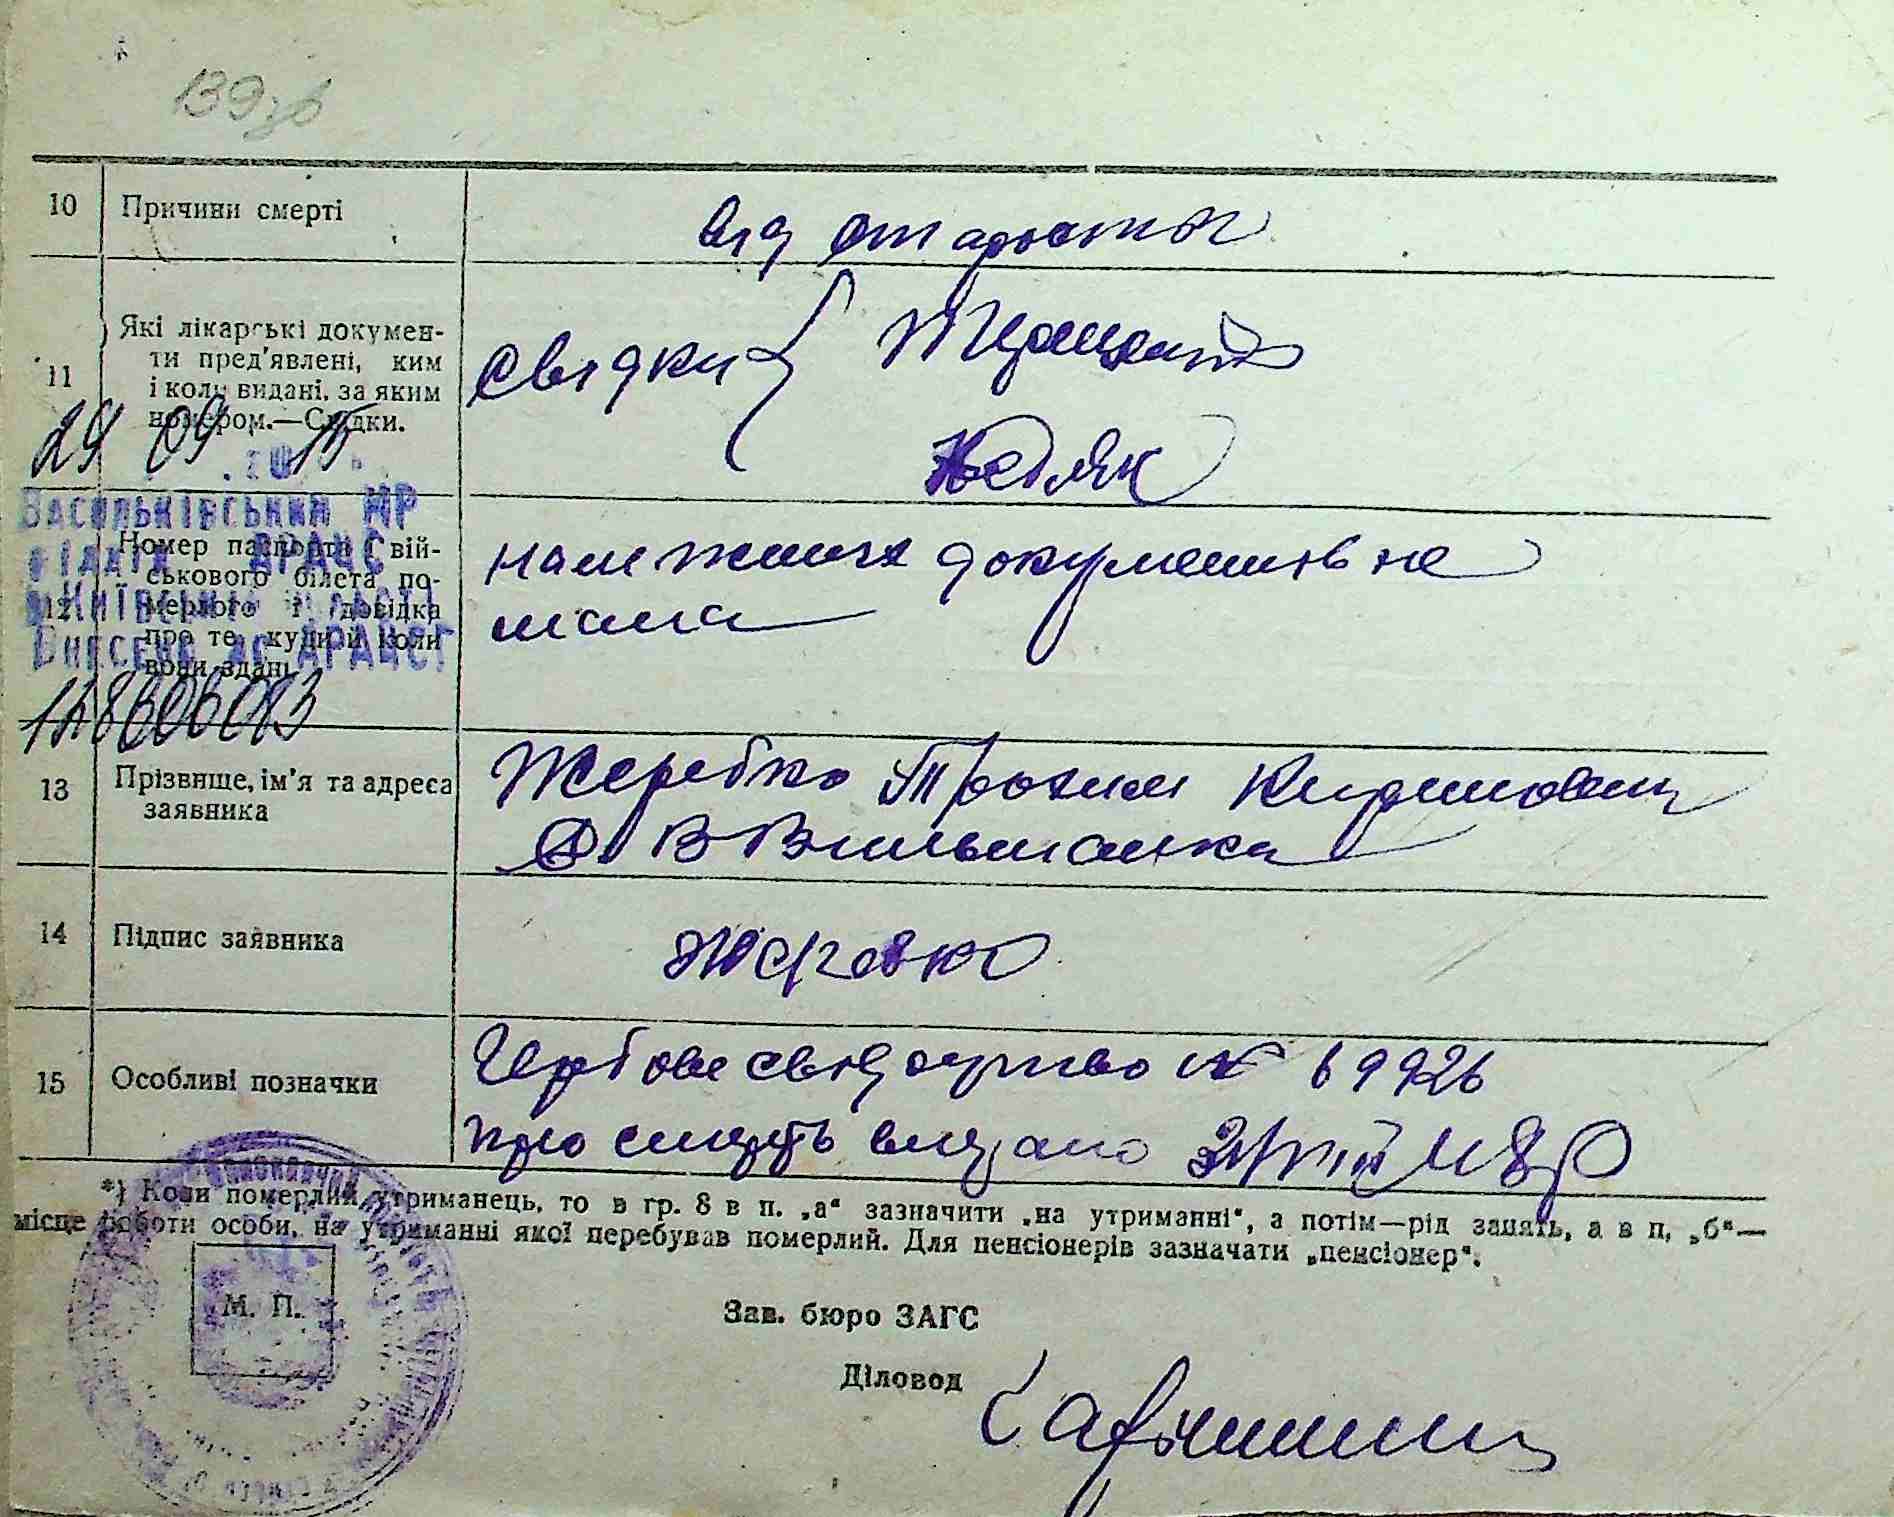 139зв
10 Причини смерті
від старости
11 Які лікарські докумен-
ти пред'явлені, ким
і коли видані, за яким
номером.—Свідки.
свідки
Недляк
24 09 15
Васильківський МР
відділ ДРАЦС
Київській області
Внесено до ДРАЦСГ
12 Номер паспорта і вій-
ськового білета по-
мерлого і довідка
про те, куди й коли
вони здані
належних документів не
мала
13 Прізвище, ім'я та адреса
заявника
Жеребко Трохим Киримович
с. В Вільшанка
14 Підпис заявника
Жеребко
15 Особливі позначки
Гербове свідоцтво № 69926
про смерть видано
*) Коли померлий утриманець, то в гр. 8 в п. „а“ зазначити „на утриманні“, а потім—рід занять, а в п. „б“—
місце роботи особи, на утриманні якої перебував померлий. Для пенсіонерів зазначати „пенсіонер“.
М. П.
Зав. бюро ЗАГС
Діловод